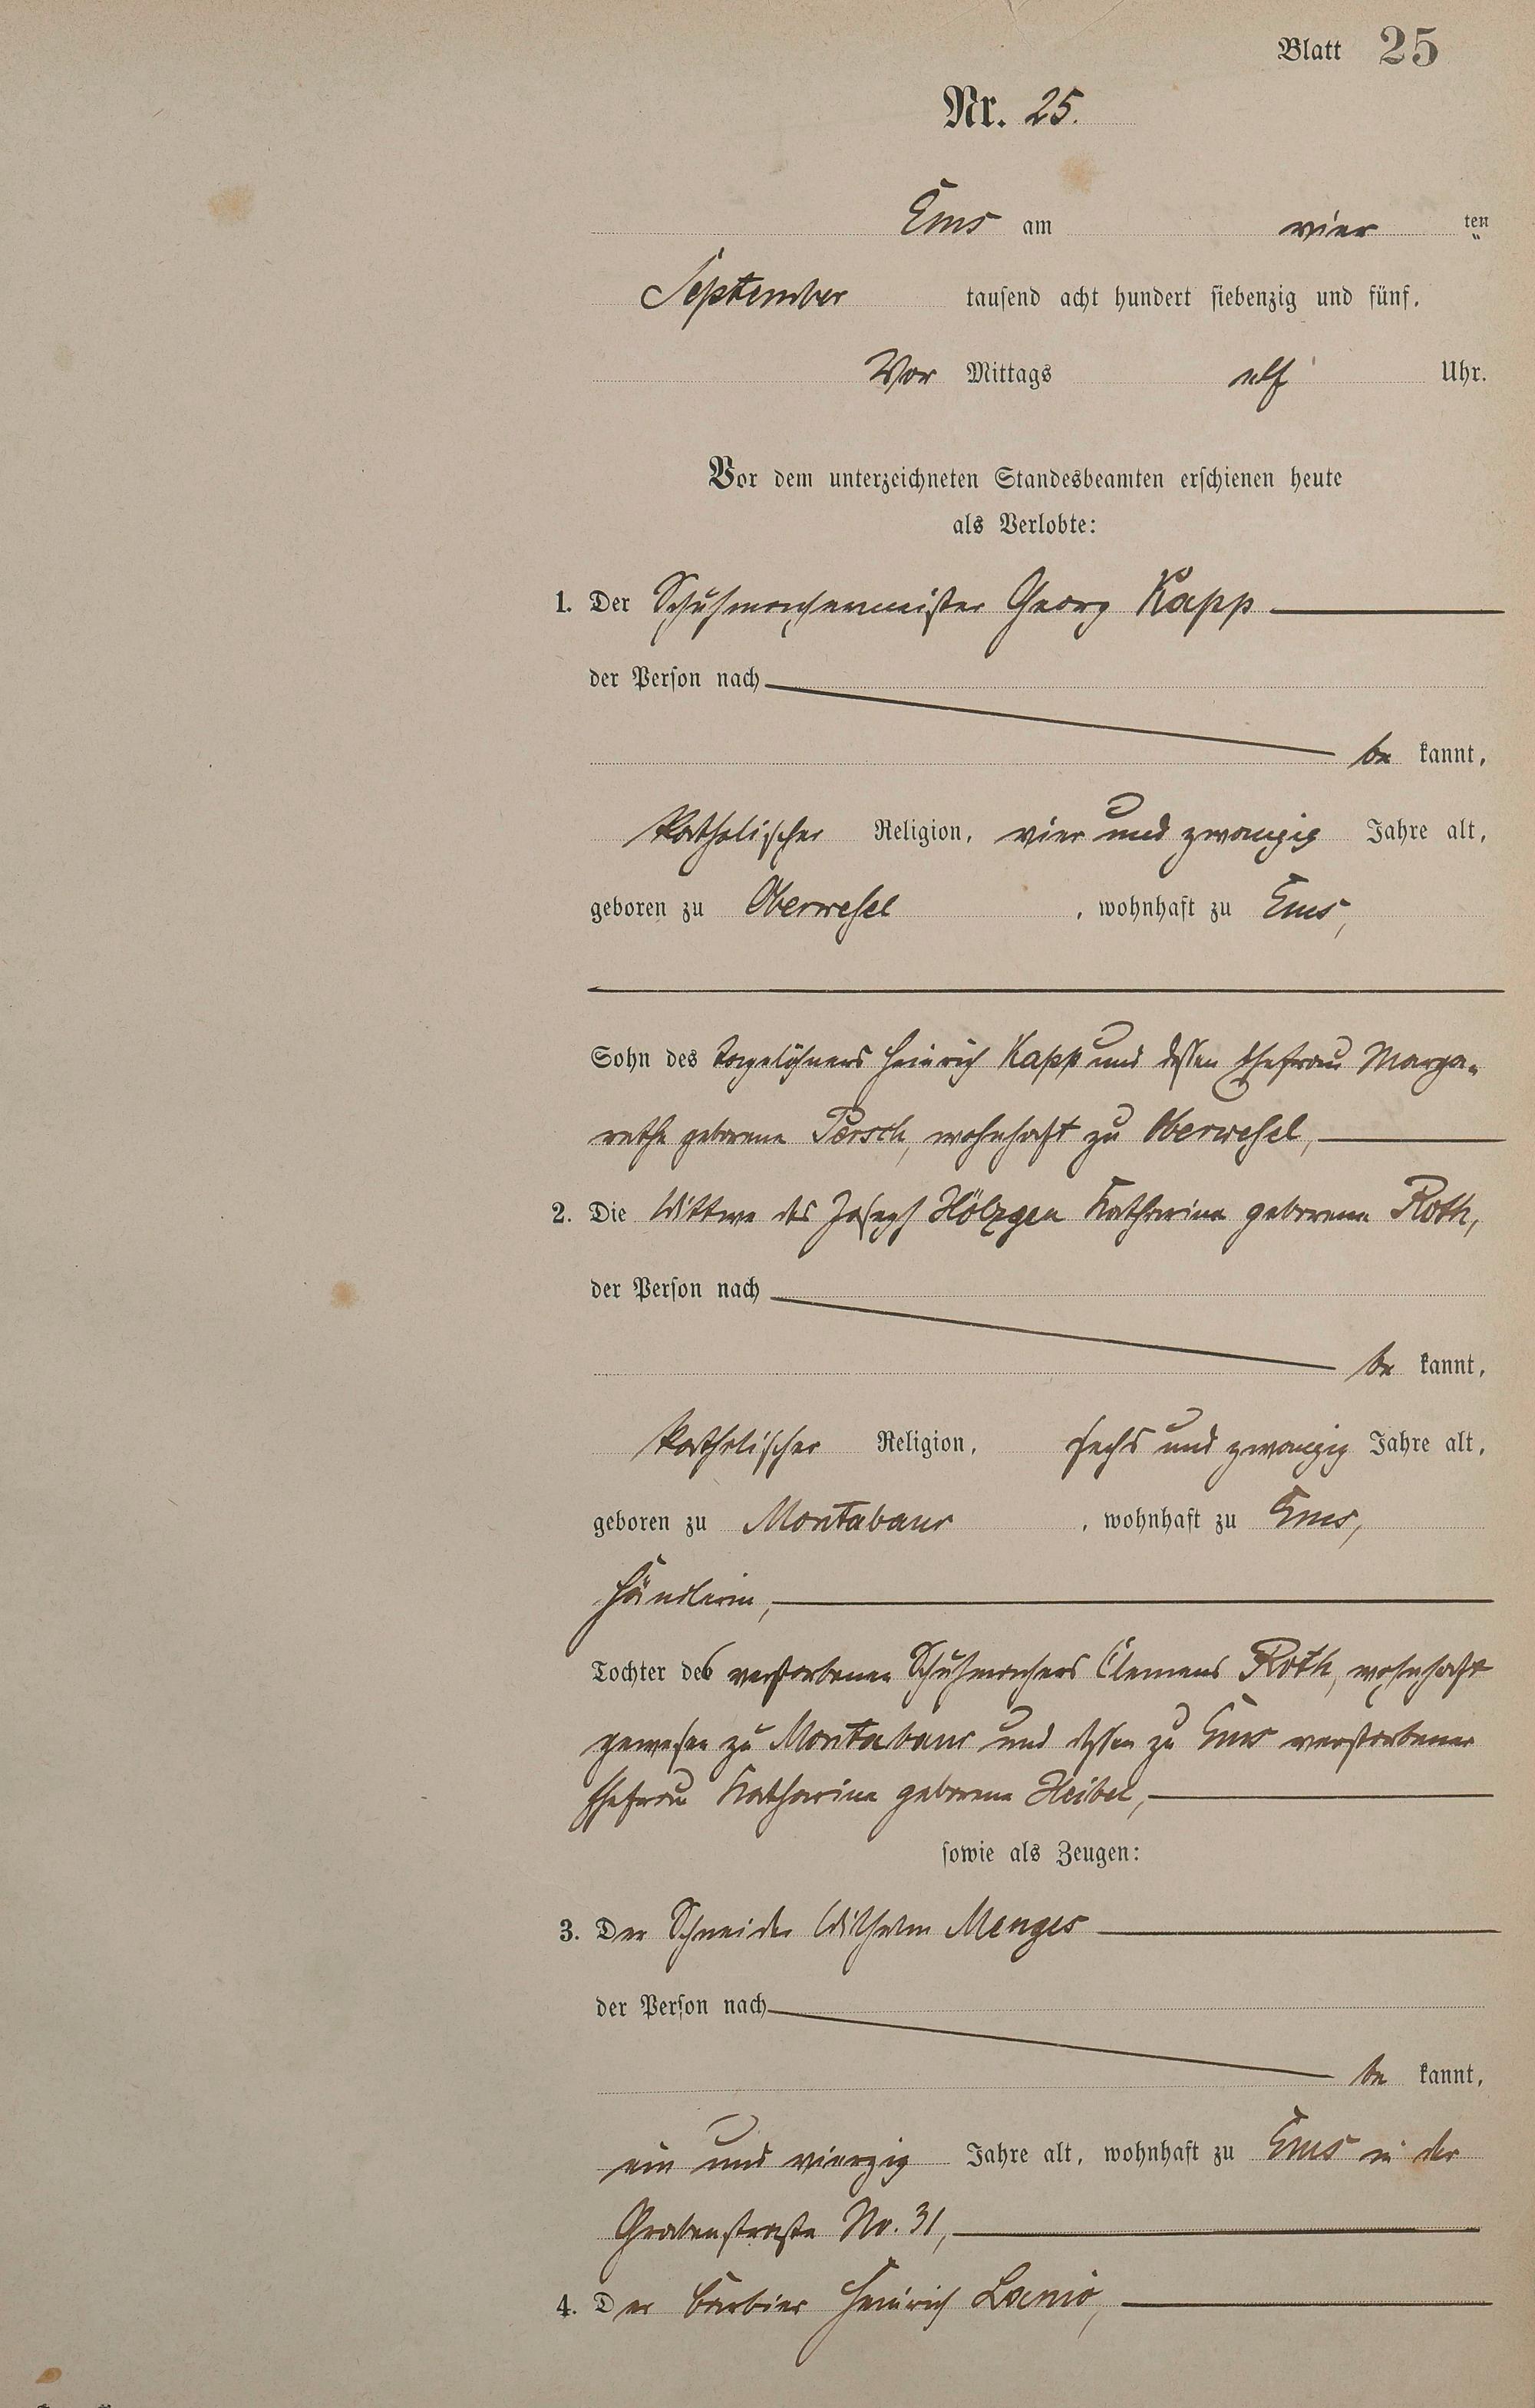 Blatt 25
Nr. 25.
Ems am vier ten
September tausend acht hundert siebenzig und fünf,
Vor Mittags elf Uhr.
Vor dem unterzeichneten Standesbeamten erschienen heute
als Verlobte:
1. Der Schuhmachermeister Georg Kapp
der Person nach
be kannt,
katholischer Religion, vier und zwanzig Jahre alt,
geboren zu Oberwesel, wohnhaft zu Ems,
Sohn des Tagelöhners Heinrich Kapp und dessen Ehefrau Marga-
rethe geborene Persch, wohnhaft zu Oberwesel,
2. Die Wittwe des Joseph Hölzgen Katharina geborene Roth,
der Person nach
be kannt,
katholischer Religion, sechs und zwanzig Jahre alt,
geboren zu Montabaur, wohnhaft zu Ems,
Händlerin,
Tochter des verstorbenen Schuhmachers Clemens Roth, wohnhaft
gewesen zu Montabaur und dessen zu Ems verstorbener
Ehefrau Katharina geborene Heibel,
sowie als Zeugen:
3. Der Schneider Wilhelm Menges
der Person nach
be kannt,
ein und vierzig Jahre alt, wohnhaft zu Ems in der
Grabenstraße No. 31,
4. Der Barbier Heinrich Lanio,